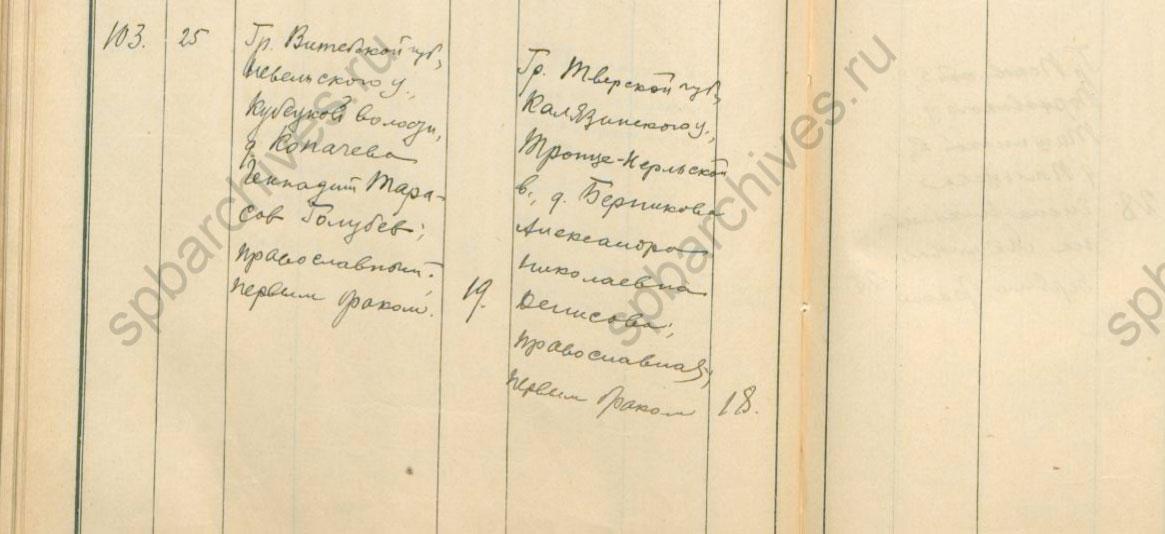 103.
25
Гр. Витебской губ.,
Невельского у.,
Кубецкой волости,
д. Копачева
Геннадий Тара-
сов Голубев;
православный;
первым браком.
19.
Гр. Тверской губ.,
Калязинского у.,
Троице-Нерльской
в., д. Берникова
Александра
Николаевна
Денисова;
православная;
первым браком
18.
spbarchives.ru
spbarchives.ru